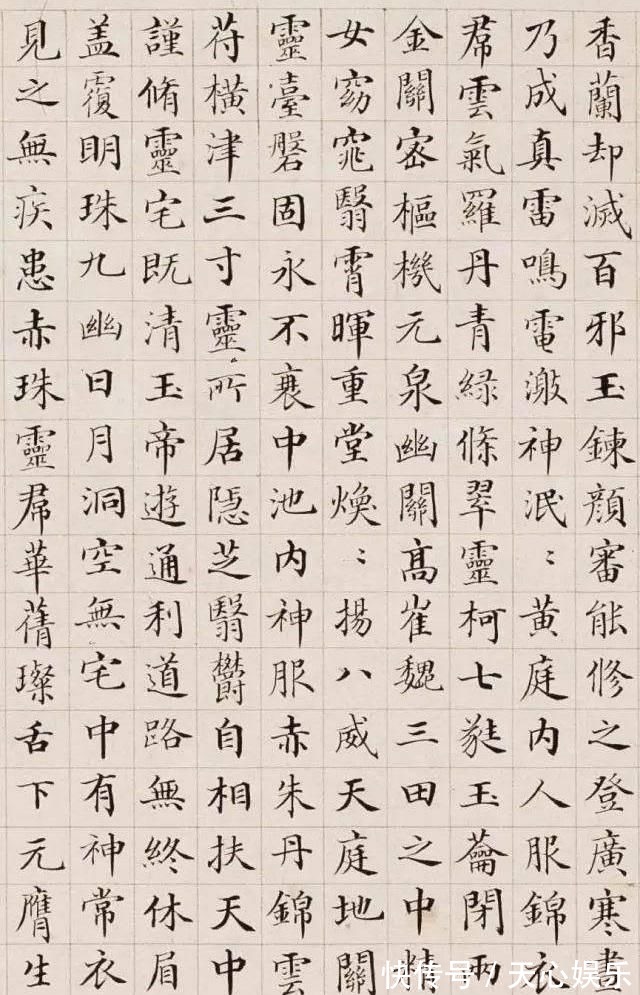 香蘭却滅百邪玉鍊顔審能修之登廣寒晝
乃成真雷鳴電激神泯〻黄庭内人服錦衣
帬雲氣羅丹青緑條翠靈柯七蕤玉蘥閉兩
金關宻樞機元泉幽關髙崔巍三田之中精
女窈窕翳霄暉重堂煥〻揚八威天庭地關
靈臺磐固永不衰中池内神服赤朱丹錦雲
苻横津三寸靈所居隱芝翳鬱自相扶天中
謹脩靈宅既清玉帝遊通利道路無終休眉
盖覆明珠九幽日月洞空無宅中有神常衣
見之無疾患赤珠靈帬華蒨璨舌下元膺生
快传号 / 天心娱乐